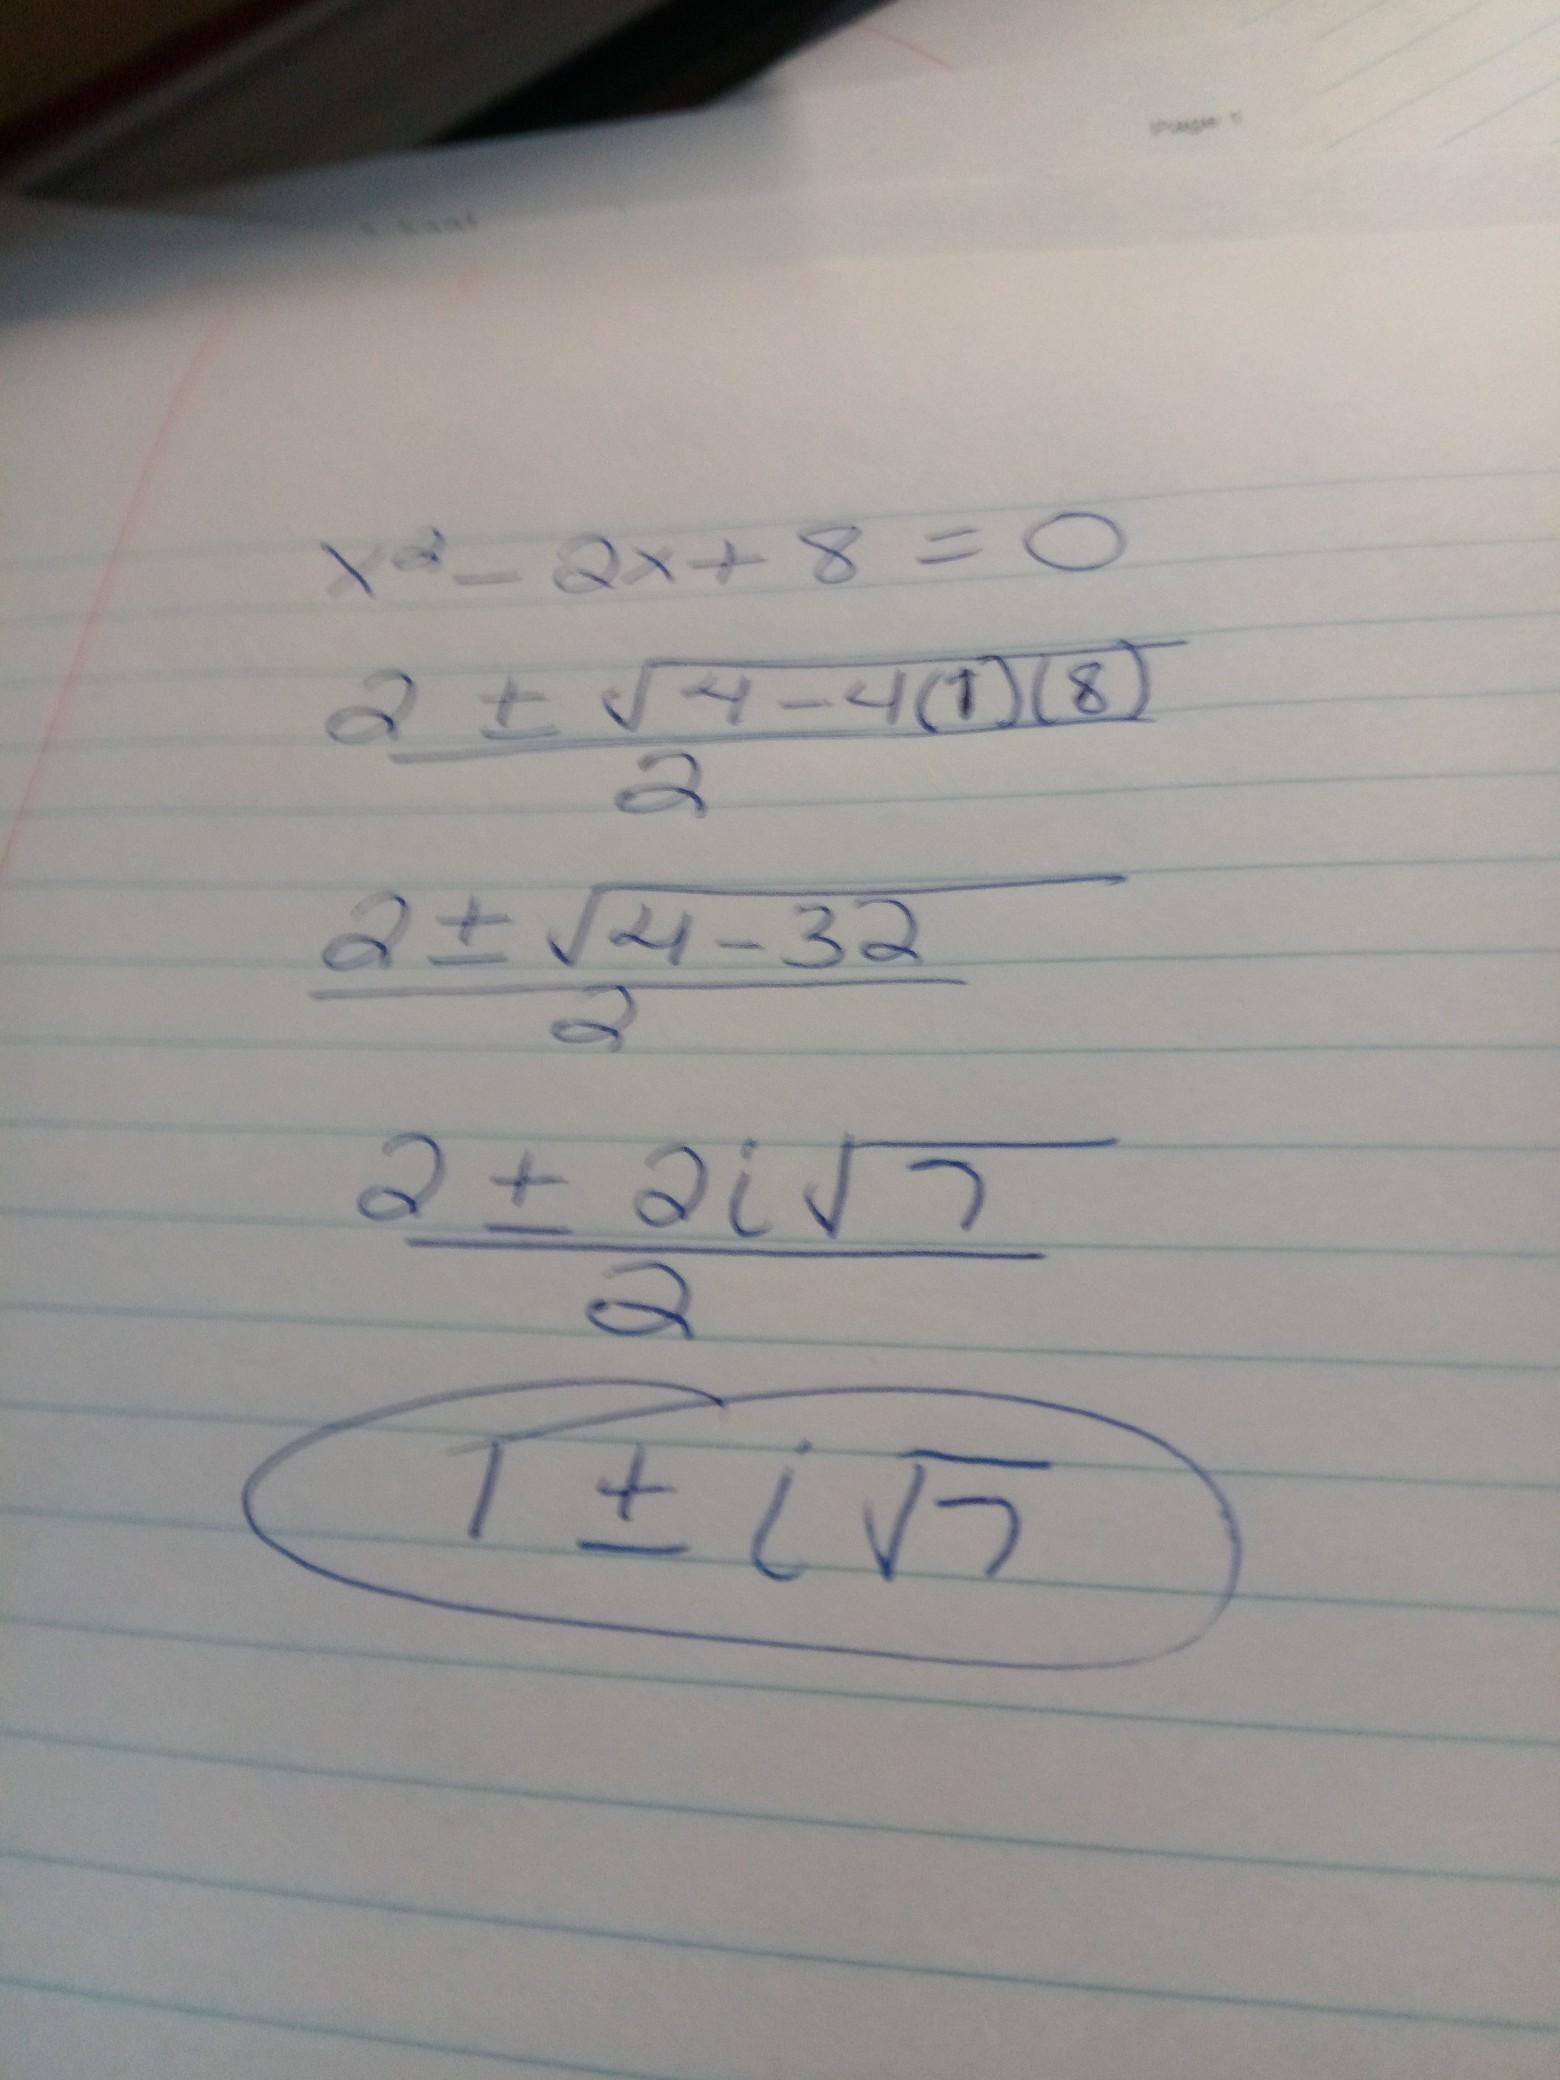 x² - 2x + 8 = 0
2 ± √4 - 4(1)(8)
2
2 ± √4 - 32
2
2 ± 2i√7
2
1 ± i√7